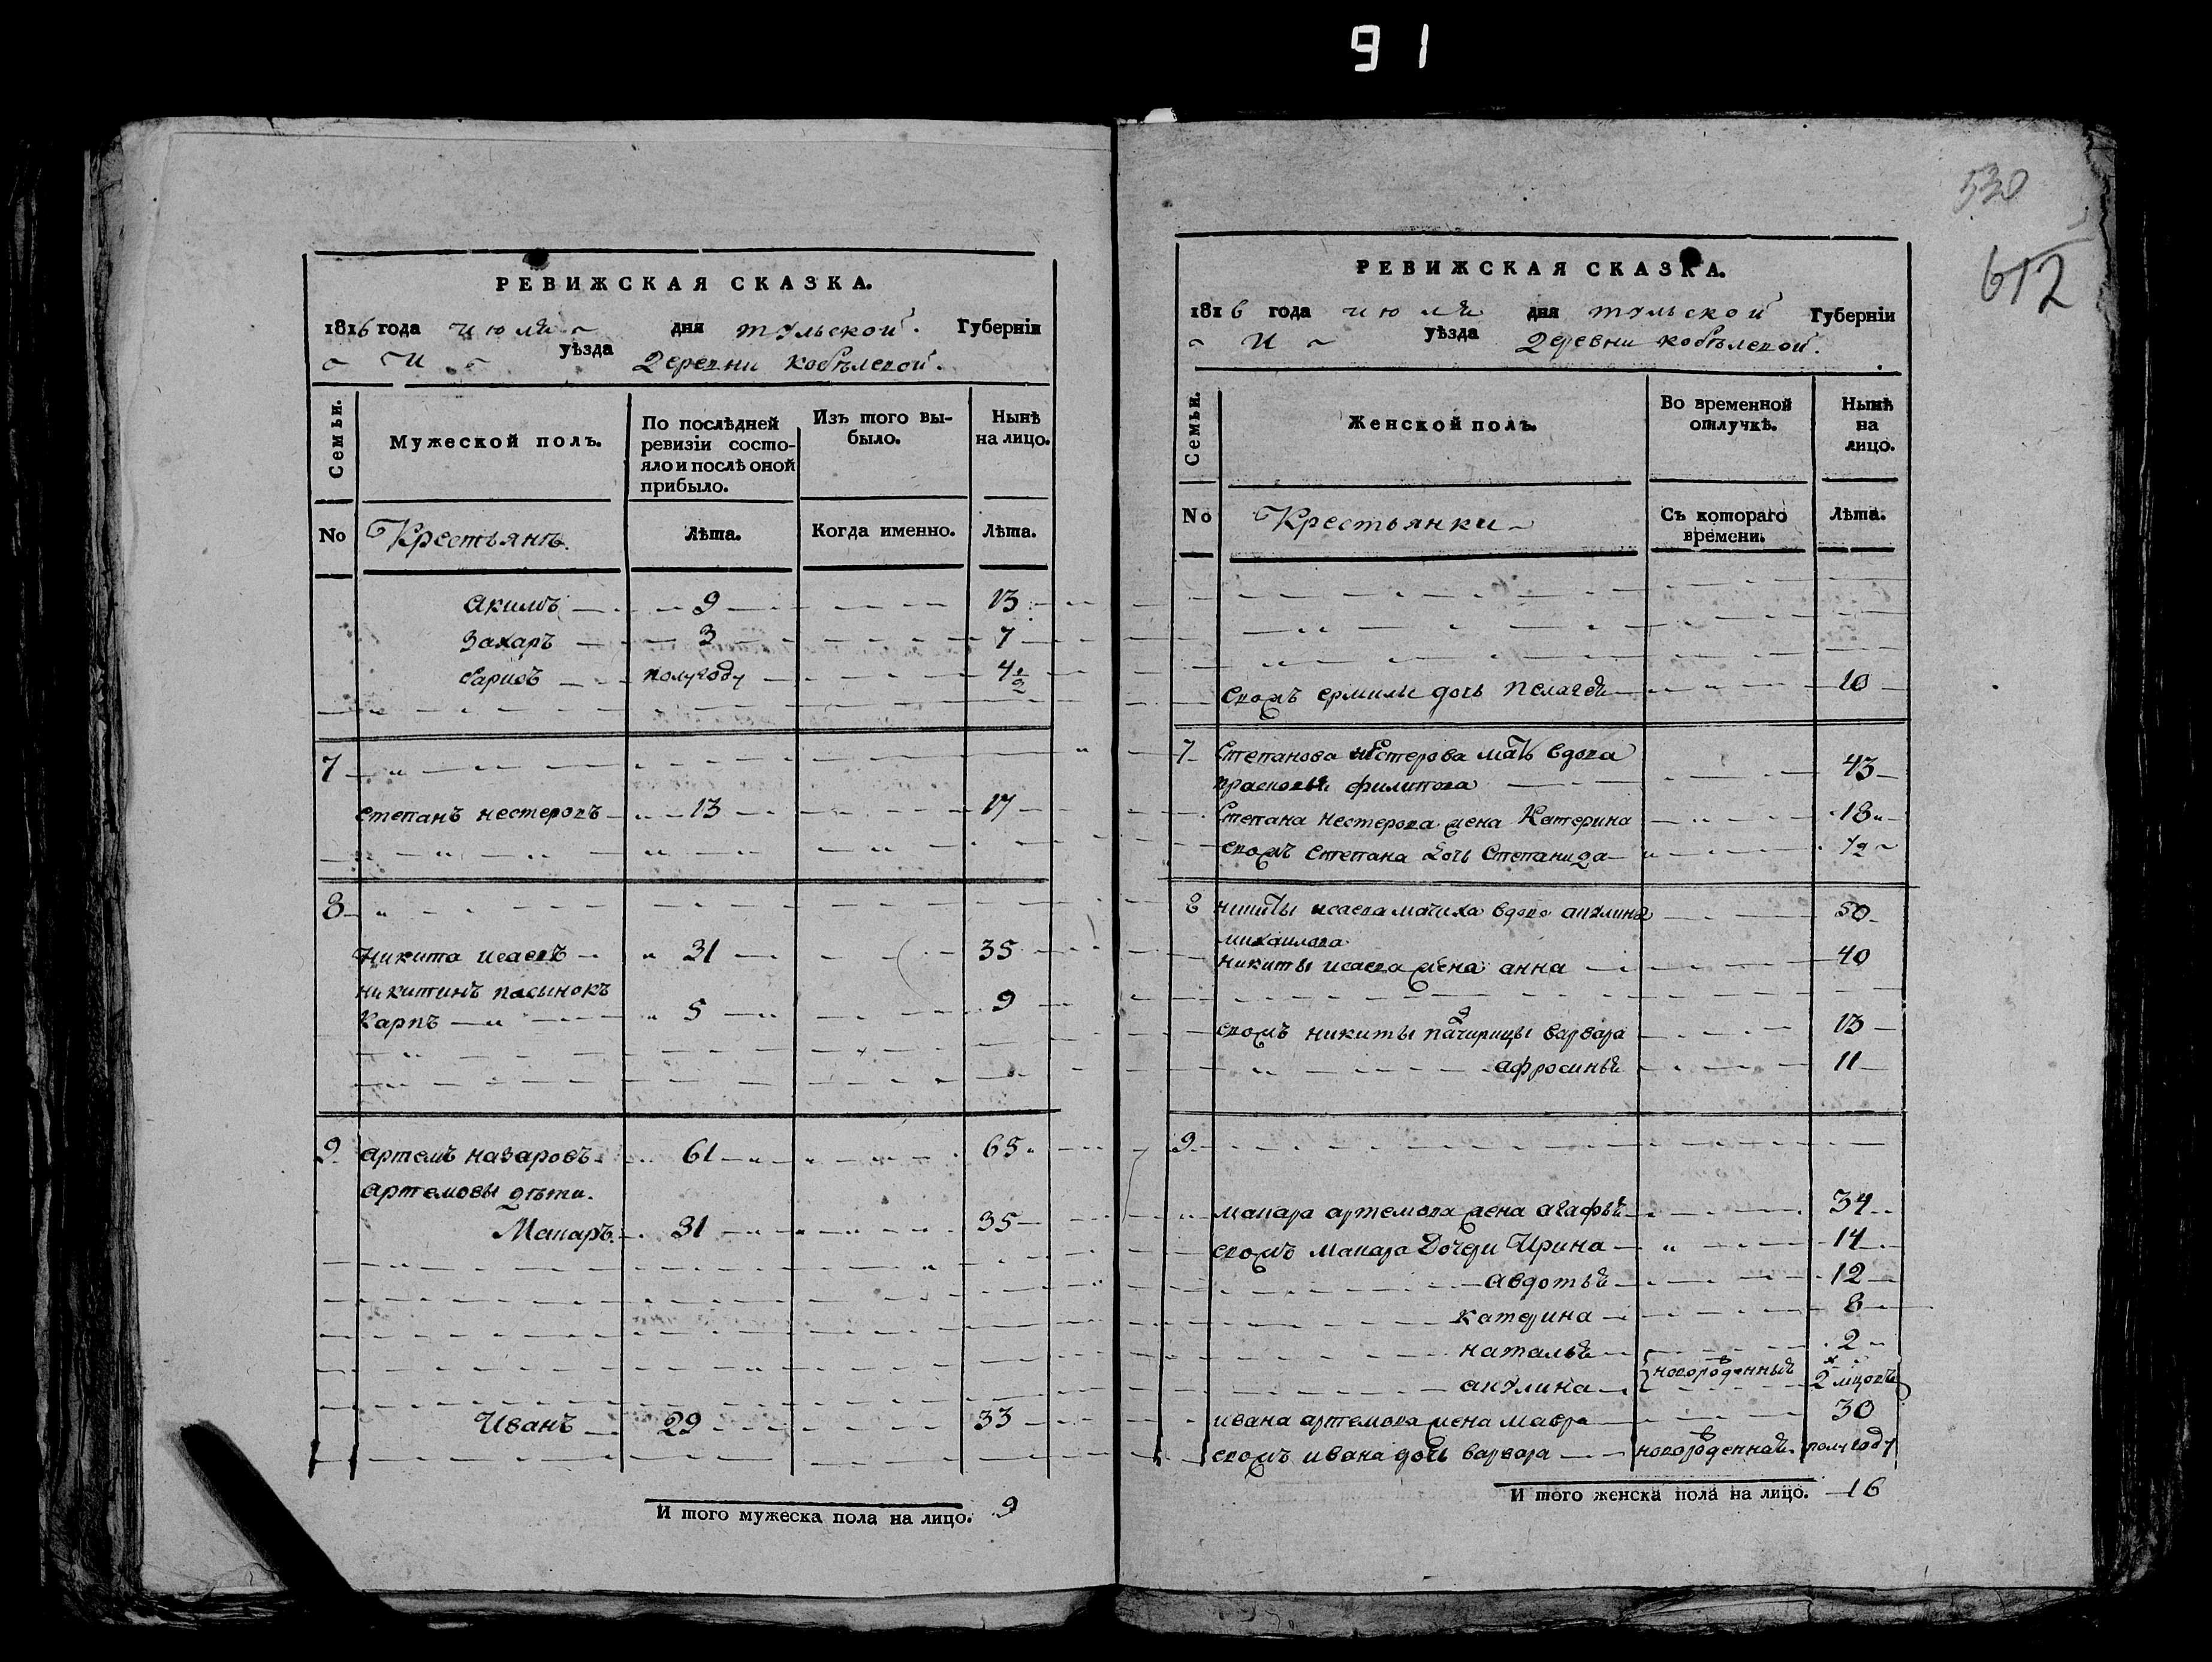 91
530
612
РЕВИЖСКАЯ СКАЗКА.
1816 года июля дня тульской Губерніи
И уѣзда деревни кобылевой.
Семьи.
Мужеской полъ.
По послѣдней ревизіи состо-
яло и послѣ оной
прибыло.
Изъ того вы-
было.
Нынѣ
на лицо.
No
Крестьянъ.
Лѣта.
Когда именно.
Лѣта.
Акимъ 9 13
Захаръ 3 7
полугоду 4 1/2
7
степанъ нестеровъ 13 17
8
Никита исаевъ 31 35
никитинъ пасынокъ
Карпъ 5 9
9 артемъ назаровъ 61 65
артемовы дѣти.
Макаръ. 31 35
Иванъ 29 33
И того мужеска пола на лицо. 9
РЕВИЖСКАЯ СКАЗКА.
1816 года июля дня тульской Губерніи
И уѣзда деревни кобылевой.
Семьи.
Женской полъ.
Во временной
отлучкѣ.
Нынѣ
на
лицо.
No
Крестьянки
Съ котораго
времени.
Лѣта.
ермилы дочь пелагея 10
7 Степанова нестерова мать вдова
прасковья филипова 43
Степана нестерова жена Катерина 18
степана дочь Степанида 1/2
8 никиты исаева мачиха вдова акулина 50
михаилова
никиты исаева жена анна 40
никиты падчирицы варвара 13
афросинья 11
9
макара артемова жена агафья 34
макара Дочери Ирина 14
авдотья 12
катерина 8
наталья 2
акулина новорожденныя 2 мцовъ
ивана артемова жена мавра 30
ивана дочь варвара новорожденная полугоду
И того женска пола на лицо. 16